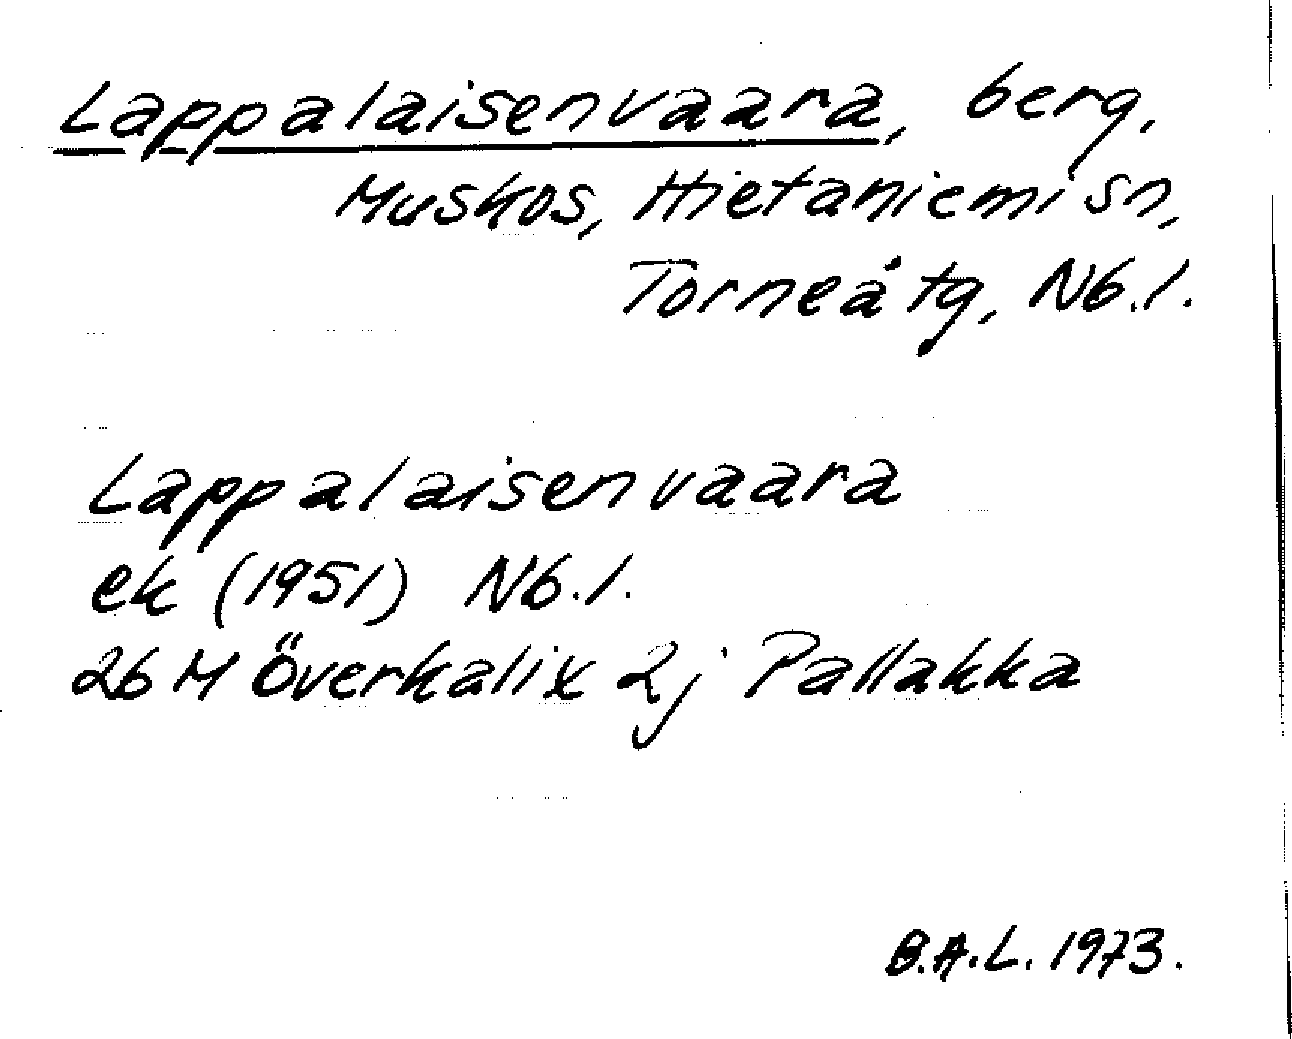 Lappalaisenvaara, berg,
Muskos, Hietaniemi sn,
Torneå tg, Nb.l.
Lappalaisenvaara
ek (1951) Nb.l.
26 M Överkalix 2j Pallakka
B.A.L. 1973.